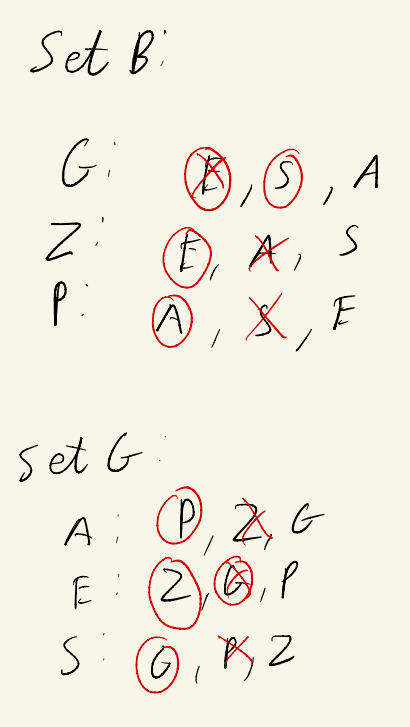 Set B:
G: E, S, A
Z: E, A, S
P: A, S, E
set G:
A: P, Z, G
E: Z, G, P
S: G, P, Z